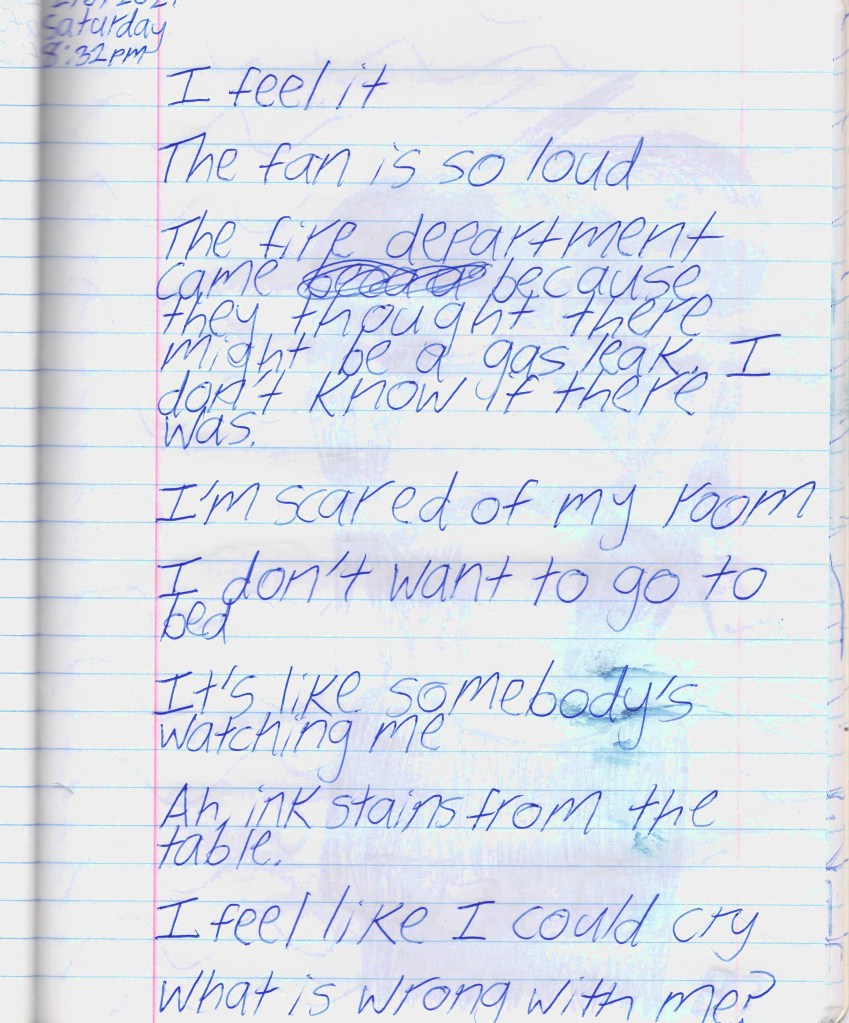 Saturday
8:32pm
I feel it
The fan is so loud
The fire department
came because
they thought there
might be a gas leak. I
don't know if there
was.
I'm scared of my room
I don't want to go to
bed
It's like somebody's
watching me
Ah, ink stains from the
table.
I feel like I could cry
What is wrong with me?